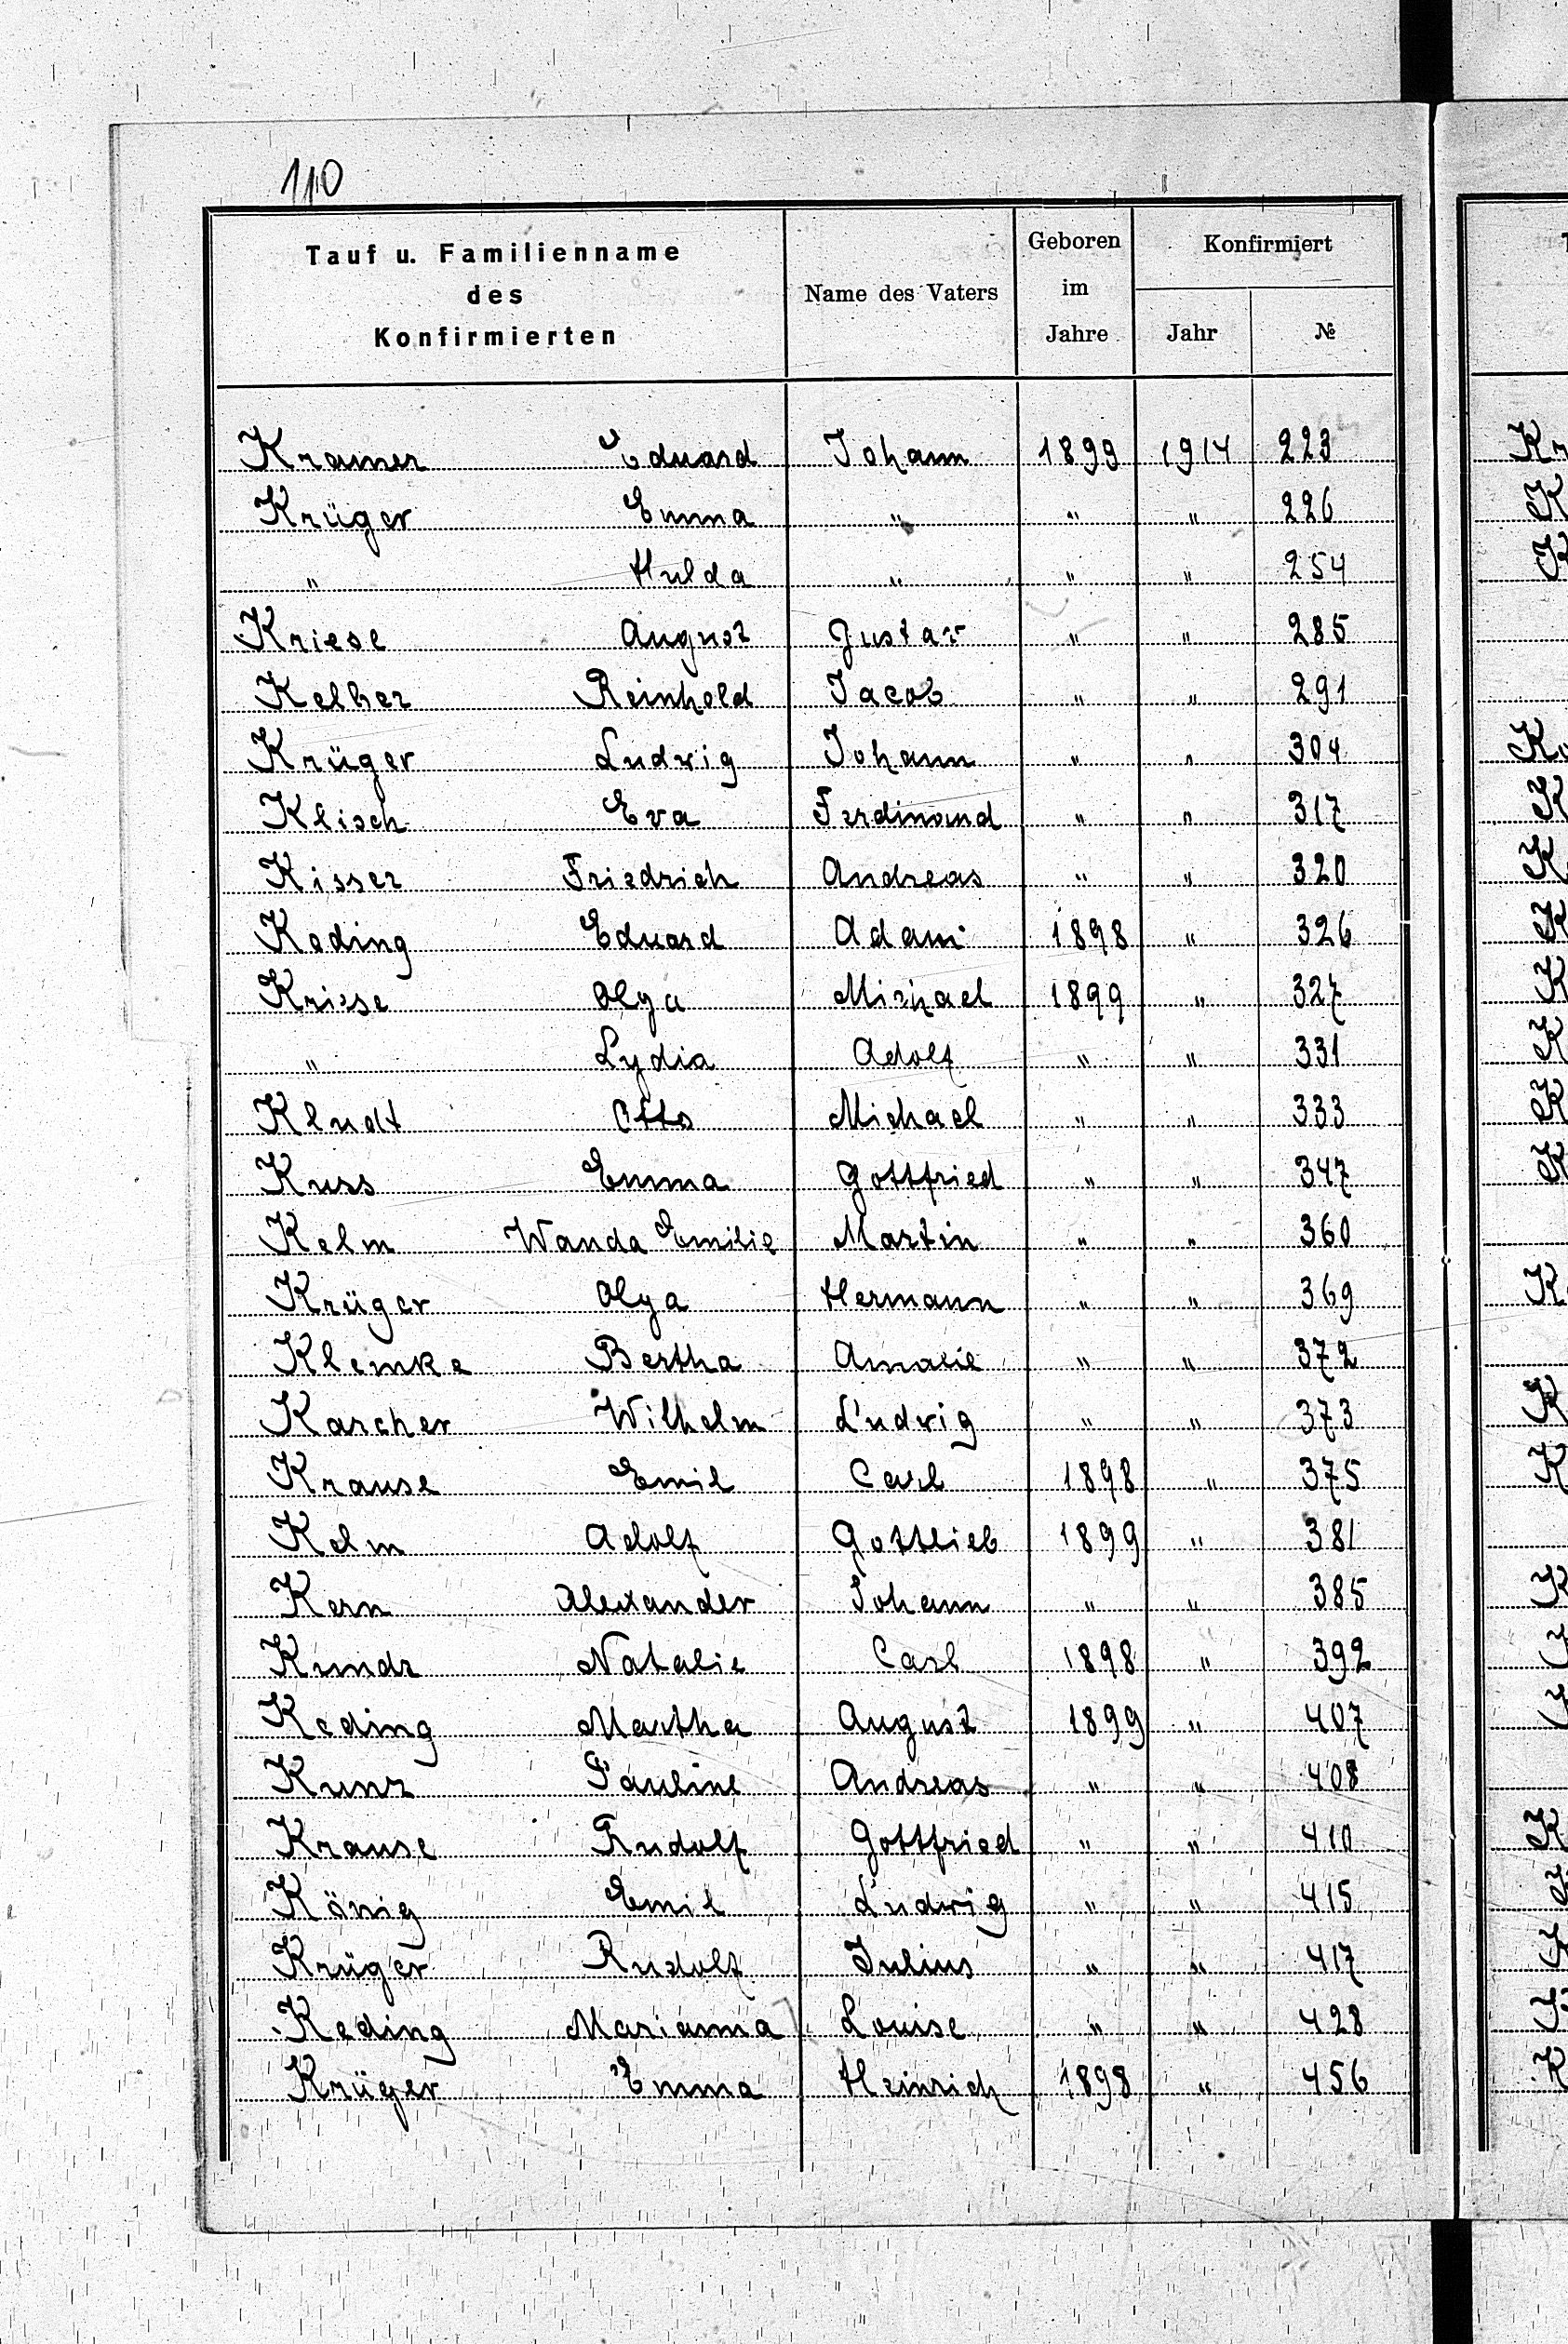 110
Tauf u. Familienname des Konfirmierten | Name des Vaters | Geboren im Jahre | Konfirmiert Jahr | №
Kramer Eduard Johann 1899 1914 223
Krüger Emma " " " 226
" Hulda " " " 254
Kriese August Gustav " " 285
Kelber Reinhold Jacob " " 291
Krüger Ludwig Johann " " 304
Klisch Eva Ferdinand " " 317
Kisser Friedrich Andreas " " 320
Kading Eduard Adam 1898 " 326
Kriese Olga Michael 1899 " 327
" Lydia Adolf " " 331
Kludt Otto Michael " " 333
Kuss Emma Gottfried " " 347
Kelm Wanda Emilie Martin " " 360
Krüger Olga Hermann " " 369
Klemke Bertha Amalie " " 372
Karcher Wilhelm Ludwig " " 373
Krause Emil Carl 1898 " 375
Kelm Adolf Gottlieb 1899 " 381
Kern Alexander Johann " " 385
Kundz Natalie Carl 1898 " 392
Keding Martha August 1899 " 407
Kunz Pauline Andreas " " 408
Krause Rudolf Gottfried " " 410
König Emil Ludwig " " 415
Krüger Rudolf Julius " " 417
Keding Marianna Louise " " 428
Krüger Emma Heinrich 1898 " 456